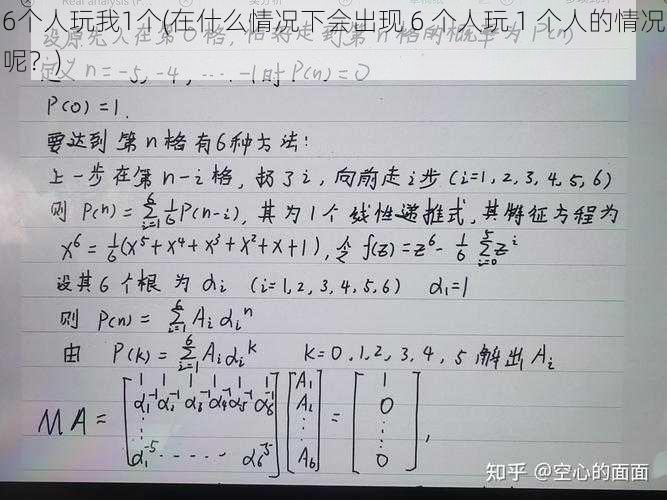 6个人玩我1个(在什么情况下会出现 6 个人玩 1 个人的情况
呢？)
设原先人在第0格，恰将走到第n格的概率为P(n)
定义 n=-5,-4,…,-1时P(n)=0
P(0)=1.
要达到第n格有6种方法：
上一步在第n-i格，扔了i，向前走i步(i=1,2,3,4,5,6)
则 P(n)=∑_{i=1}^{6} 1/6 P(n-i)，其为1个线性递推式，其特征方程为
x^6=1/6(x^5+x^4+x^3+x^2+x+1)，令 f(z)=z^6-1/6 ∑_{i=0}^{5} z^i
设其6个根为αi (i=1,2,3,4,5,6) α1=1
则 P(n)=∑_{i=1}^{6} Ai αi^n
由 P(k)=∑_{i=1}^{6} Ai αi^k K=0,1,2,3,4,5 解出 Ai
1 1 1 1 1 1 A1 1
MA= α1^-1 α2^-1 α3^-1 α4^-1 α5^-1 α6^-1 A2 = 0
⋮ ⋮ ⋮
α1^-5 ······ α6^-5 A6 0 ,
知乎 @空心的面面